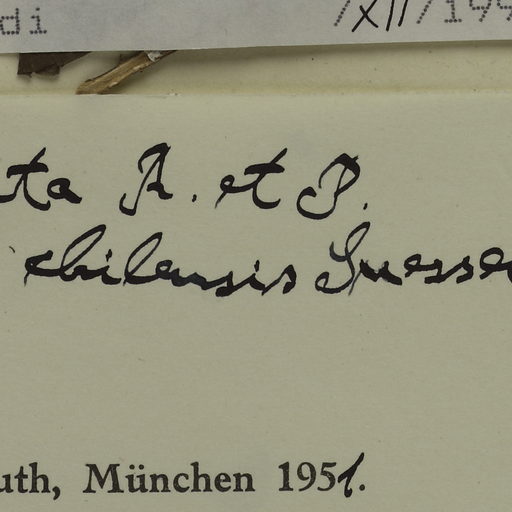 di /XII/199
ta R. et P.
chilensis Suessen
uth, München 1951.